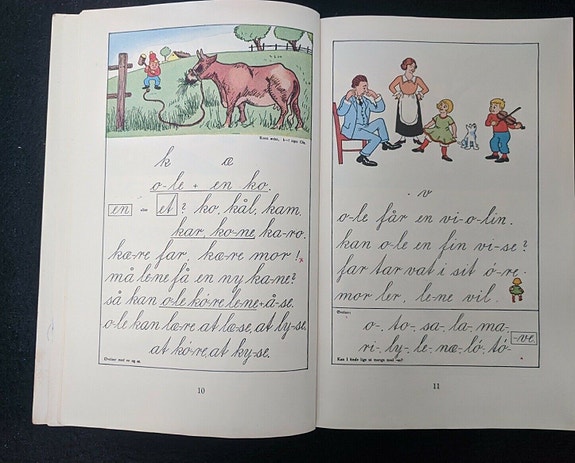 Koen æder, k-i siger Ole.
k æ
o-le + en ko.
en - et ? ko, kål, kam.
kar, ko-ne, ka-ro.
kæ-re far, kæ-re mor !
må le-ne få en ny ka-ne?
så kan o-le kö-re le-ne + å-se.
o-le kan læ-re at læ-se, at ly-se,
at kö-re, at ky-se.
Øvelser med en og et.
10
v
o-le får en vi-o-lin.
kan o-le en fin vi-se?
far tar vat i sit ö-re.
mor ler, le-ne vil.
Øvelser:
o-, to-, sa-, la-, ma-,
-ve.
ri-, ly-, le-, næ-, lö-, tö-
Kan I finde lige så mange med -se?
11